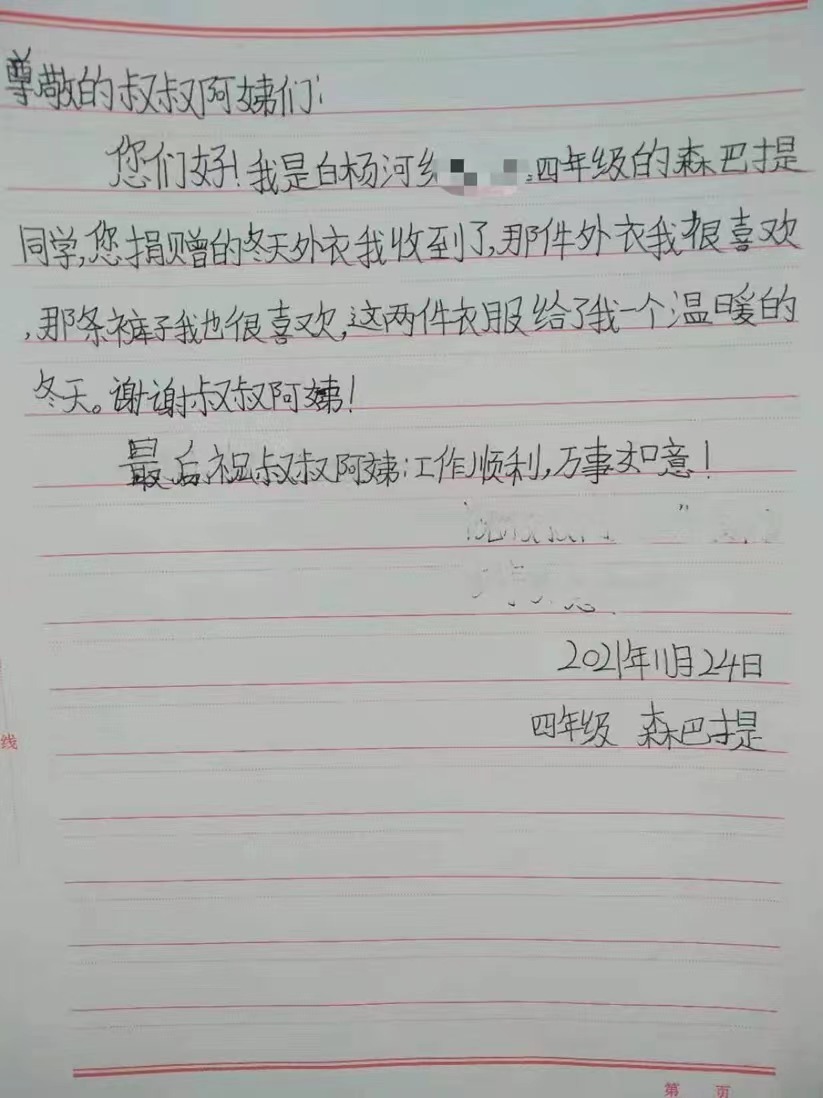 尊敬的叔叔阿姨们:
您们好!我是白杨河 四年级的森巴提
同学,您捐赠的冬天外衣我收到了,那件外衣我很喜欢
,那条裤子我也很喜欢,这两件衣服给了我一个温暖的
冬天。谢谢叔叔阿姨!
最后祝叔叔阿姨:工作顺利,万事如意!
2021年11月24日
四年级 森巴提
线
第 页